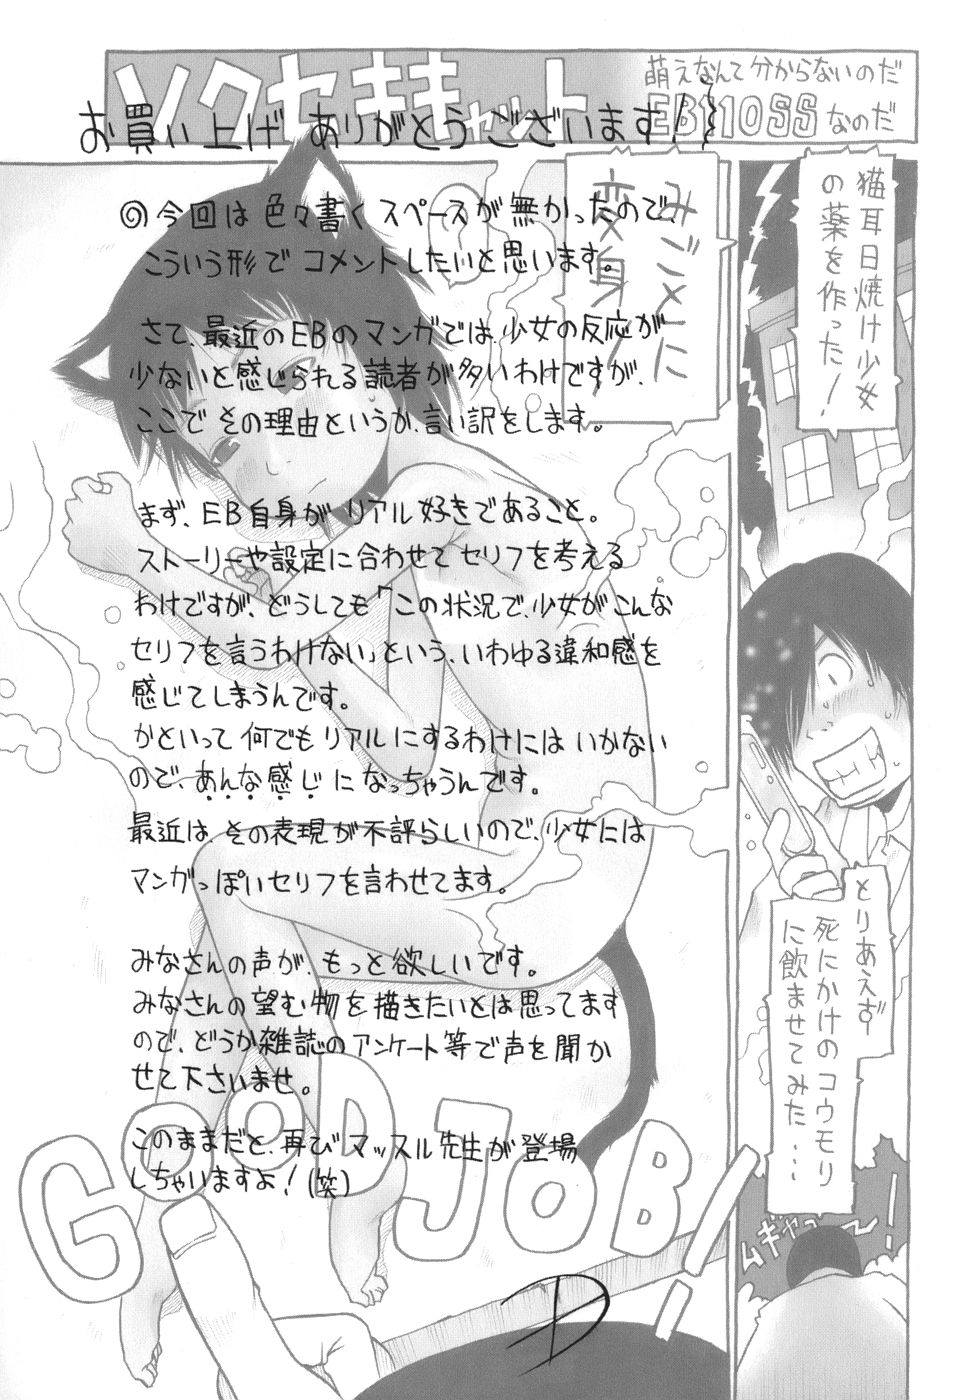 ソクセキキャット
萌えなんて分からないのだ
EB110SSなのだ
お買い上げ ありがとうございます!
◎今回は色々書くスペースが無かったので、
こういう形でコメントしたいと思います。
さて、最近のEBのマンガでは、少女の反応が
少ないと感じられる読者が多いわけですが、
ここでその理由というか、言い訳をします。
まず、EB自身がリアル好きであること。
ストーリーや設定に合わせてセリフを考える
わけですが、どうしても「この状況で、少女がこんな
セリフを言うわけない」という、いわゆる違和感を
感じてしまうんです。
かといって何でもリアルにするわけにはいかない
ので、あんな感じになっちゃうんです。
最近は、その表現が不評らしいので、少女には
マンガっぽいセリフを言わせてます。
みなさんの声が、もっと欲しいです。
みなさんの望む物を描きたいとは思ってます
ので、どうか雑誌のアンケート等で声を聞か
せて下さいませ。
このままだと、再びマッスル先生が登場
しちゃいますよ!(笑)
猫耳日焼け少女
の薬を作った!
とりあえず
死にかけのコウモリ
に飲ませてみた…
ムギャァ〜!
みごとに
変身!
GOOD JOB!!